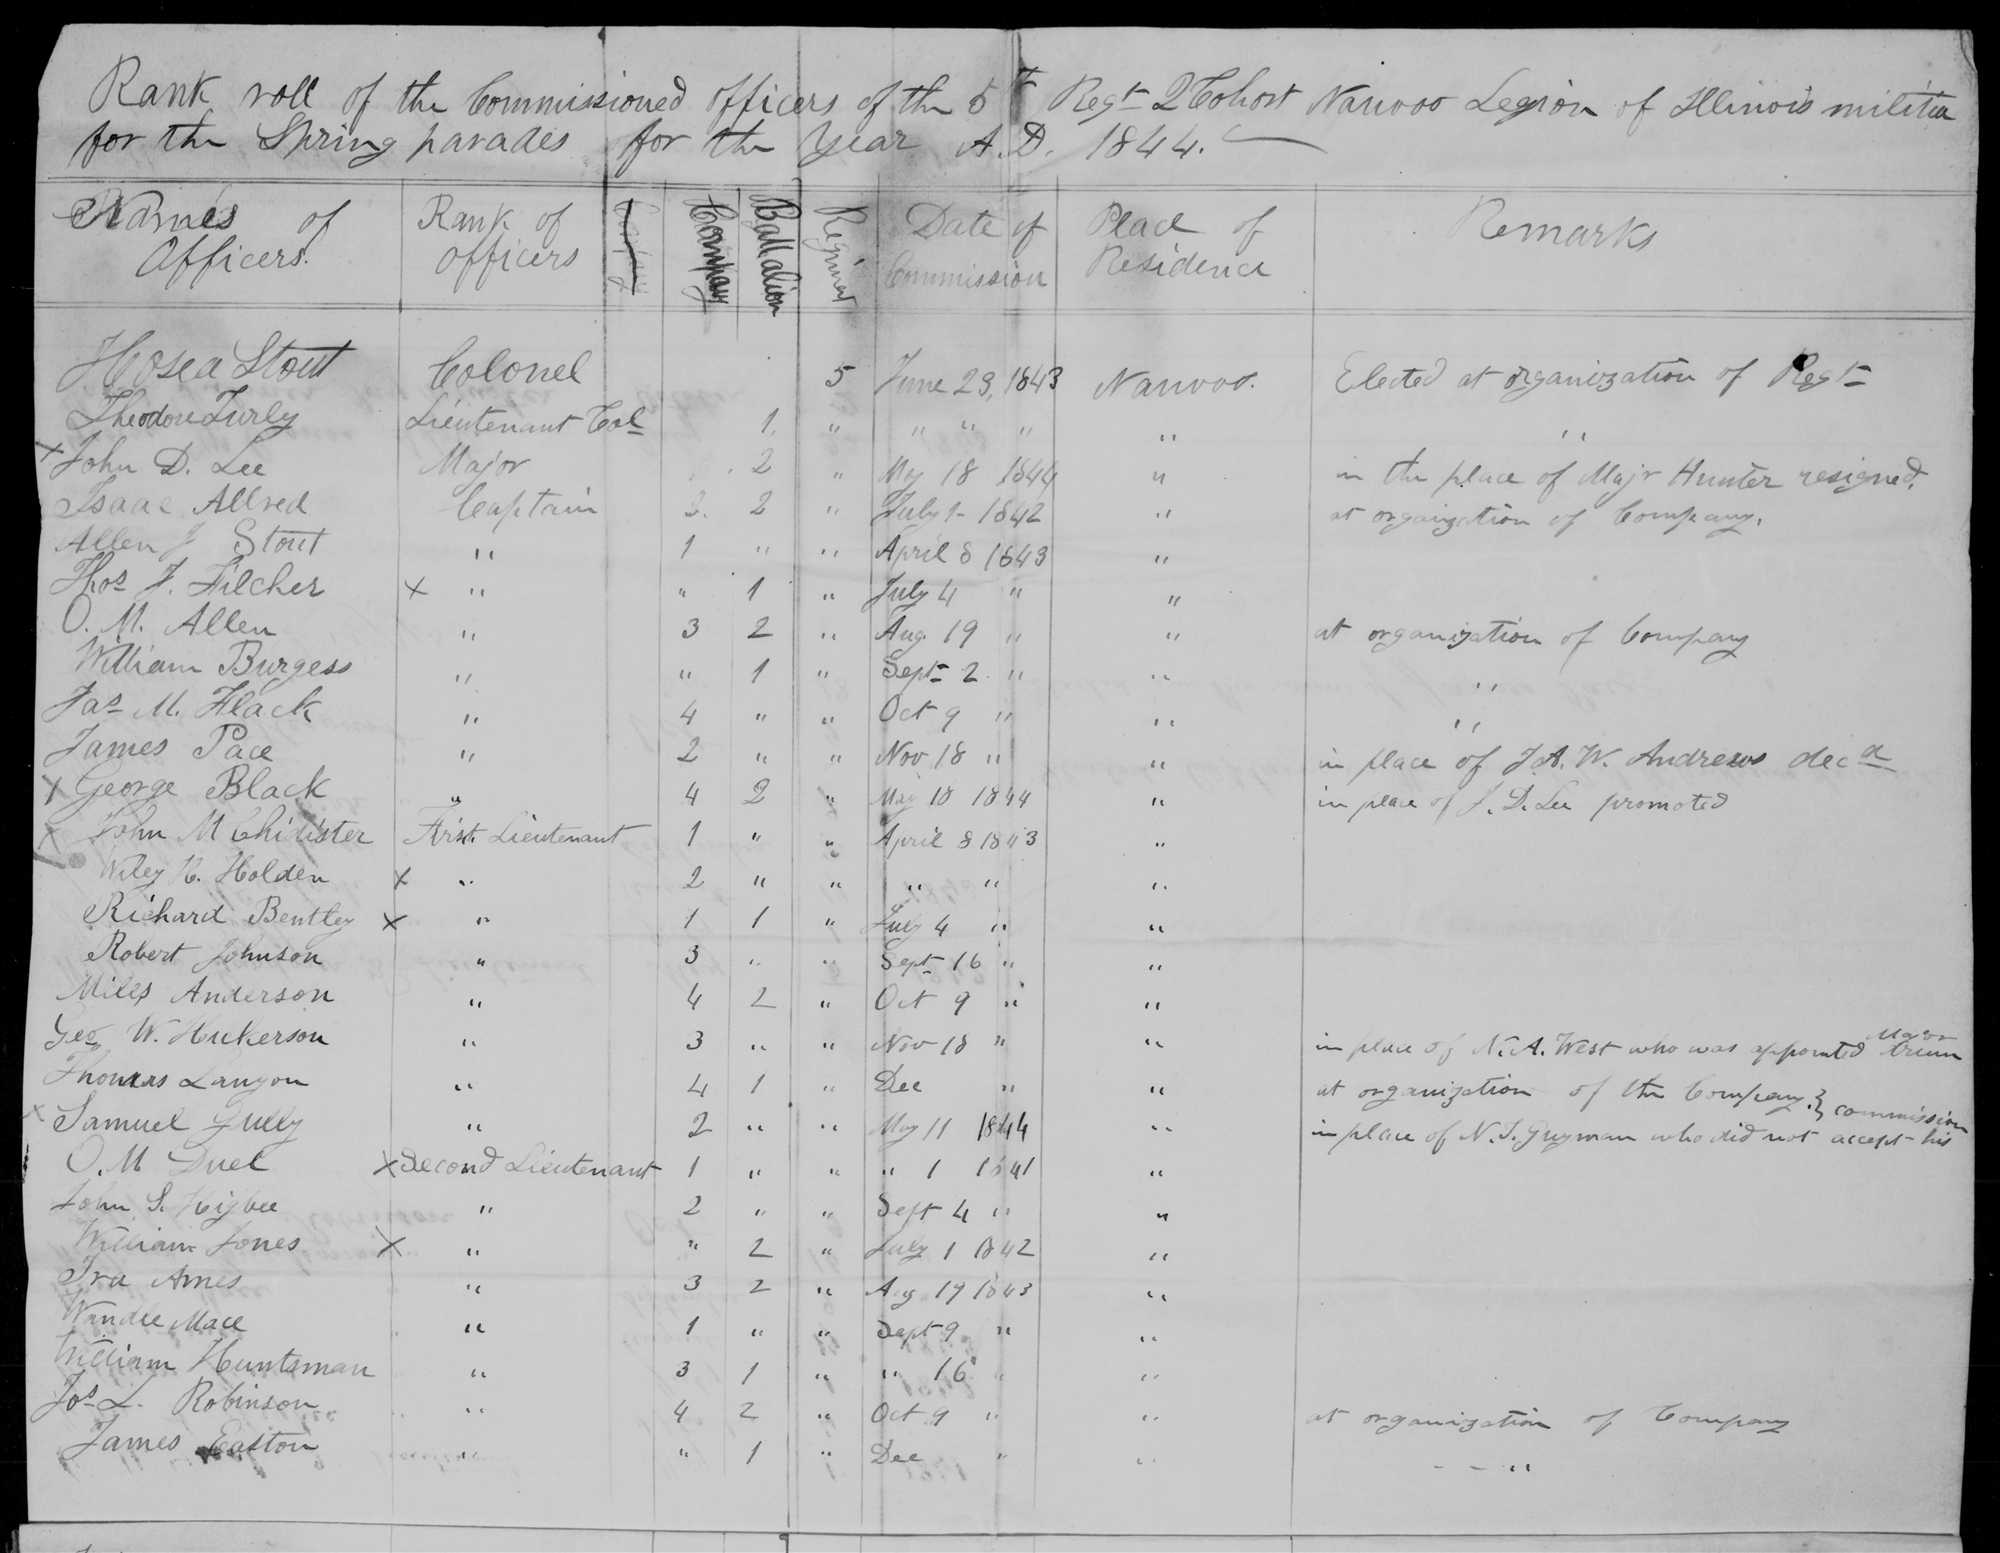 Rank roll of the Commissioned officers of the 5th Regt 2 Cohort Nauvoo Legion of Illinois militia
for the Spring parades for the Year A.D. 1844.
Names of Officers. Rank of officers Company Battalion Regiment Date of Commission Place of Residence Remarks
Hosea Stout Colonel 5 June 23, 1843 Nauvoo. Elected at organization of Regt
Theodore Turly Lieutenant Col 1. " " " " " "
x John D. Lee Major 2 " May 18 1844 " in the place of Majr Hunter resigned.
Isaac Allred Captain 2. 2 " July 1 1842 " at organization of Company.
Allen J Stout " 1 " " April 8 1843 "
Thos J. Filcher x " " 1 " July 4 " "
O. M. Allen " 3 2 " Aug. 19 " " at organization of Company
William Burgess " " 1 " Sept 2 " " "
Jas M. Flack " 4 " " Oct 9 " " "
James Pace " 2 " " Nov 18 " " in place of J.A.W. Andrews decd
x George Black " 4 2 " May 18 1844 " in place of J. D. Lee promoted
x John M Chidister First Lieutenant 1 " " April 8 1843 "
Wiley K. Holden x " 2 " " " " "
Richard Bentley x " 1 1 " July 4 " "
Robert Johnson " 3 " " Sept 16 " "
Miles Anderson " 4 2 " Oct 9 " "
Geo W. Hickerson " 3 " " Nov 18 " " in place of N. A. West who was appointed Major
Thomas Langon " 4 1 " Dec " " at organization of the Company }
x Samuel Gully " 2 " " May 11 1844 " in place of N. T. Guyman who did not accept his commission
O. M Duel x Second Lieutenant 1 " " " 1 1841 "
John S. Higbee " 2 " " Sept 4 " "
William Jones x " " 2 " July 1 1842 "
Ira Ames " 3 2 " Aug 19 1843 "
Wandle Mace " 1 " " Sept 9 " "
William Huntsman " 3 1 " " 16 " "
Jos L. Robinson " 4 2 " Oct 9 " " at organization of Company
James Easton " " 1 " Dec " " - - "